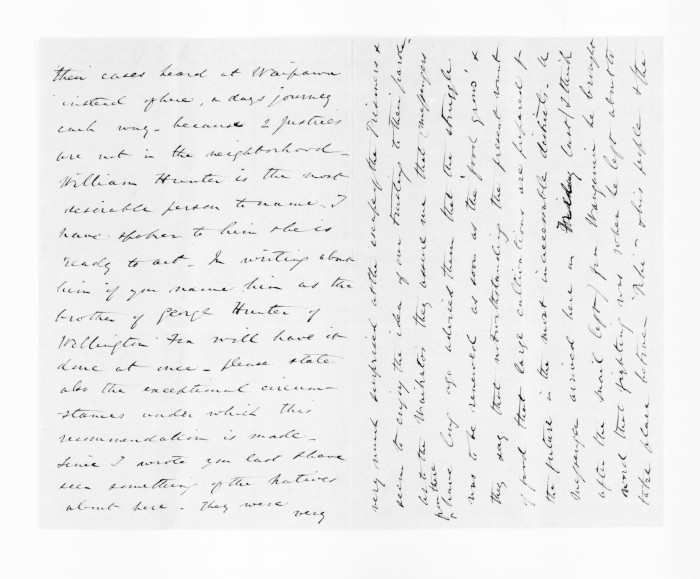 their cases heard at Waipawa
instead of here, a days journey
each way - because 2 Justices
are not in the neighborhood -
William Hunter is the most
desirable person to name. I
have spoken to him & he is
ready to act. In writing about
him if you name him as the
brother of George Hunter of
Wellington Fox will have it
done at once - please state
also the exceptional circum-
stances under which this
recommendation is made -
Since I wrote you last I have
seen something of the Natives
about here. They were
very
very much surprised at the escape of the Prisoners &
seem to enjoy the idea of our trusting to their parole.
As to the Waikatos they assure me that messengers
from there
have long ago advised them that the struggle
was to be renewed as soon as the 'food grows' &
they say that notwithstanding the present want
of food that large cultivations are prepared for
the future in the most inaccessible districts. A
messenger arrived here on Friday last (I think
after the mail left) from Wanganui he brought
word that fighting was when he left about to
take place between & his people & the